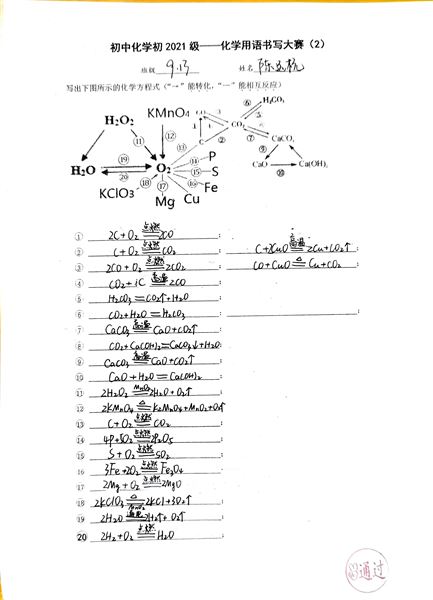 初中化学初 2021 级——化学用语书写大赛（2）
班级 9.13 姓名 陈
写出下图所示的化学方程式（“→”能转化，“—”能相互反应）
KMnO₄ CO ⑥ H₂CO₃
H₂O₂ ⑪ ⑫ CO₂ ⑦ CaCO₃
⑬ C ② ⑨
H₂O ⑲ ⑳ O₂ ⑭ P CaO ⑩ Ca(OH)₂
⑮ S
KClO₃ ⑱ ⑰ ⑯ Fe
Mg Cu
① 2C+O₂ 点燃 2CO ; ;
② C+O₂ 点燃 CO₂ ; C+2CuO 高温 2Cu+CO₂↑ ;
③ 2CO+O₂ 点燃 2CO₂ ; CO+CuO △ Cu+CO₂ ;
④ CO₂+C 高温 2CO ;
⑤ H₂CO₃=CO₂↑+H₂O ;
⑥ CO₂+H₂O=H₂CO₃ ; ;
⑦ CaCO₃ 高温 CaO+CO₂↑ ;
⑧ CO₂+Ca(OH)₂=CaCO₃↓+H₂O ;
⑨ CaCO₃ 高温 CaO+CO₂↑ ;
⑩ CaO+H₂O=Ca(OH)₂ ;
⑪ 2H₂O₂ MnO₂ 2H₂O+O₂↑ ;
⑫ 2KMnO₄ △ K₂MnO₄+MnO₂+O₂↑ ;
⑬ C+O₂ 点燃 CO₂ ;
⑭ 4P+5O₂ 点燃 2P₂O₅ ;
⑮ S+O₂ 点燃 SO₂ ;
16 3Fe+2O₂ 点燃 Fe₃O₄ ;
17 2Mg+O₂ 点燃 2MgO ;
18 2KClO₃ MnO₂ △ 2KCl+3O₂↑ ;
19 2H₂O 通电 2H₂↑+O₂↑ ;
20 2H₂+O₂ 点燃 H₂O ;
通过